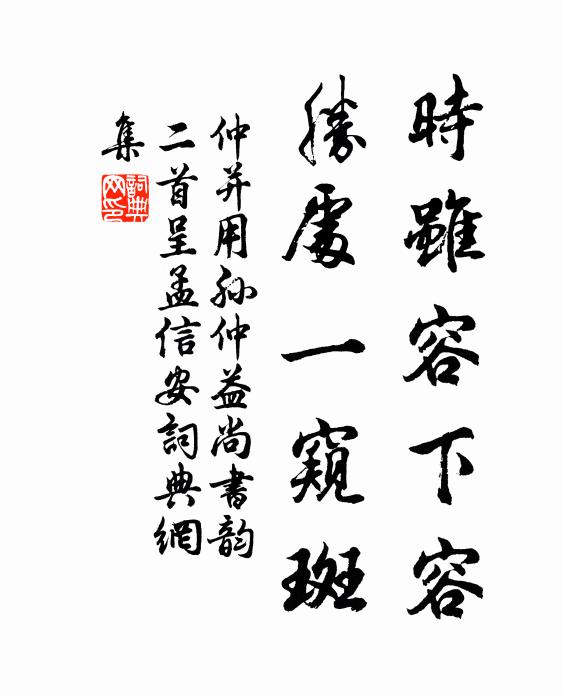 時雖容下容
勝處一窺斑
仲并用孙仲益尚書韵
二首呈孟信安詞典網
集
詞典网印